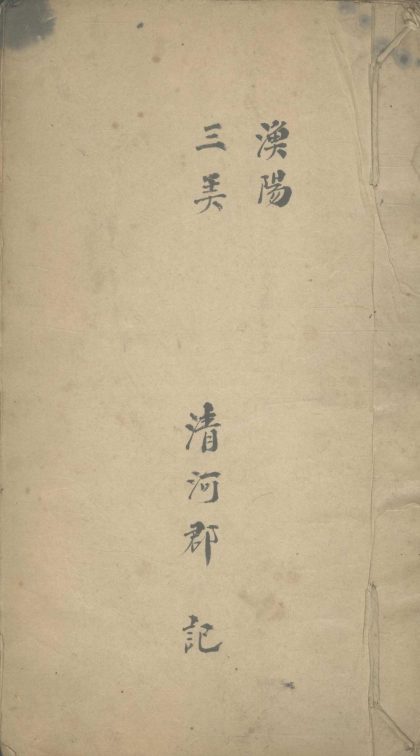 漢陽
三美
清河郡 記